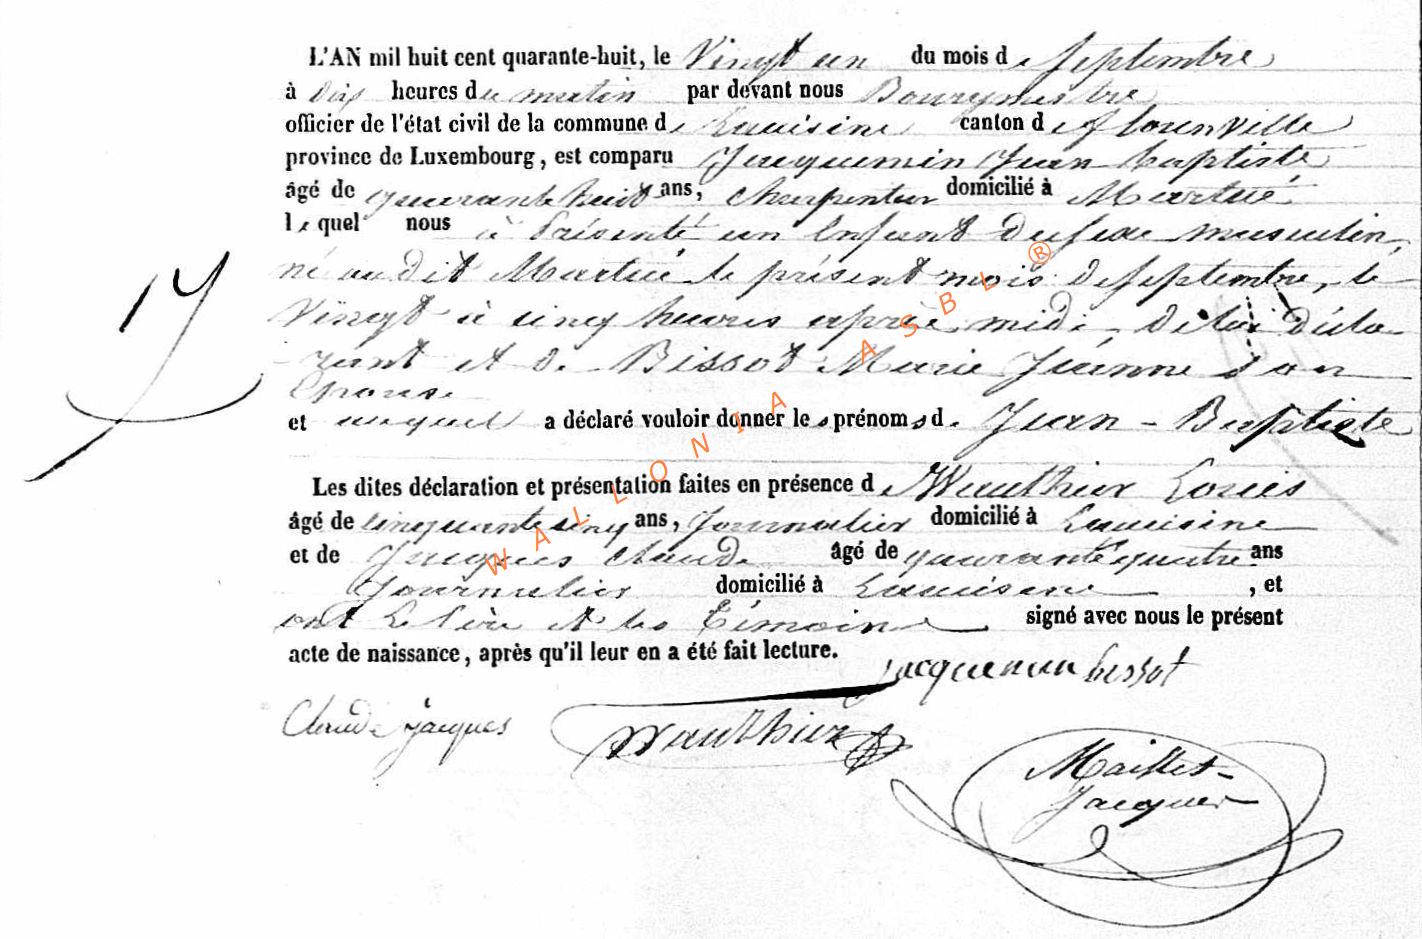 L'AN mil huit cent quarante-huit, le Vingt un du mois de Septembre
à dix heures du matin par devant nous Bourgmestre
officier de l'état civil de la commune de Lacuisine canton de florenville
province de Luxembourg, est comparu Jacquemin Jean baptiste
âgé de quarante huit ans, charpentier domicilié à Martué
lequel nous à Présenté un Enfant du sexe masculin,
né au dit Martué le présent mois de septembre, le
17
Vingt à cinq heures après midi, de lui décla
rant et de Bissot Marie Jeanne son
Epouse
et auquel a déclaré vouloir donner les prénoms de Jean - Baptiste
Les dites déclaration et présentation faites en présence de Wauthier Louis
âgé de cinquante cinq ans, Journalier domicilié à Lacuisine
et de Jacques claude âgé de quarante quatre ans
Journalier domicilié à Lacuisine, et
ont le Père et les Témoins signé avec nous le présent
acte de naissance, après qu'il leur en a été fait lecture.
jacquemin bissot
Claude jacques Wauthier
Maillet-
Jacques
WALLONIA ASBL ®